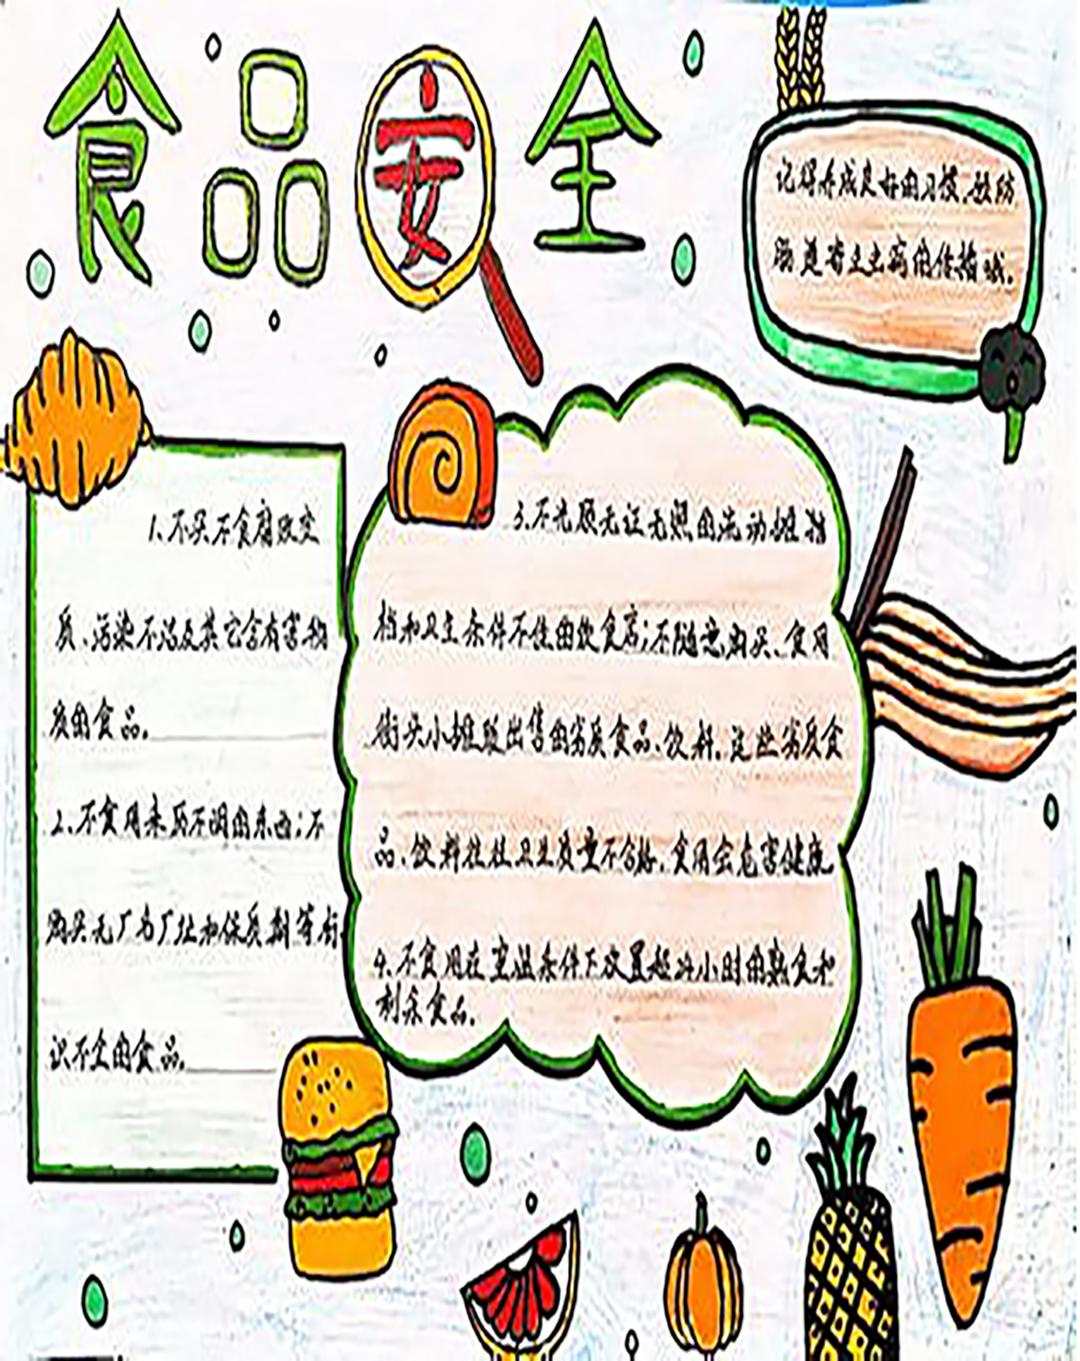 食品安全
记得养成良好的习惯.预防
肠道寄生虫病的传播哦.
1.不买不食腐败变
质、污染不洁及其它含有害物
质的食品.
2.不食用来历不明的东西;不
购买无厂名厂址和保质期等标
识不全的食品.
3.不光顾无证无照的流动摊档
档和卫生条件不佳的饮食店;不随意购买、食用
街头小摊贩出售的劣质食品、饮料.这些劣质食
品、饮料往往卫生质量不合格.食用会危害健康
4.不食用在室温条件下放置超过小时的熟食和
剩余食品.